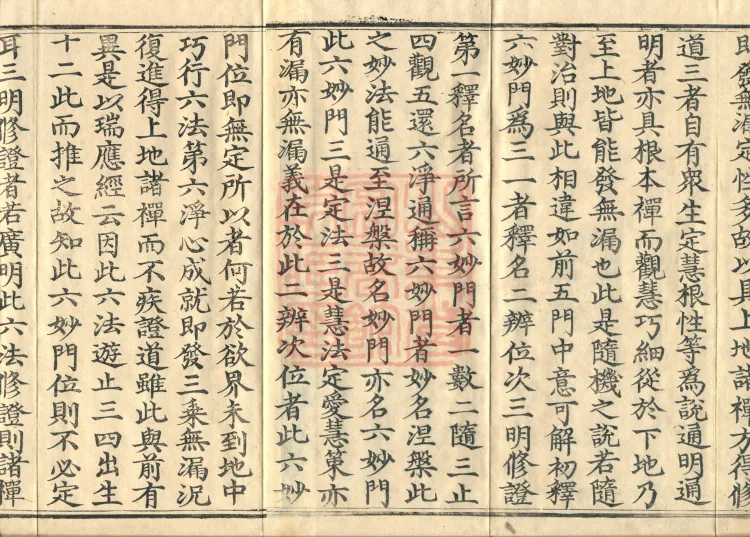 即發無漏定性多故以具上地諸禪方得修
道三者自有眾生定慧根性等爲說通明通
明者亦具根本禪而觀慧巧細從於下地乃
至上地皆能發無漏也此是隨機之說若隨
對治則與此相違如前五門中意可解初釋
六妙門爲三一者釋名二辨位次三明修證
第一釋名者所言六妙門者一數二隨三止
四觀五還六淨通稱六妙門者妙名涅槃此
之妙法能通至涅槃故名妙門亦名六妙門
此六妙門三是定法三是慧法定愛慧策亦
有漏亦無漏義在於此二辨次位者此六妙
門位即無定所以者何若於欲界未到地中
巧行六法第六淨心成就即發三乘無漏況
復進得上地諸禪而不疾證道雖此與前有
異是以瑞應經云因此六法遊止三四出生
十二此而推之故知此六妙門位則不必定
耳三明修證者若廣明此六法修證則諸禪